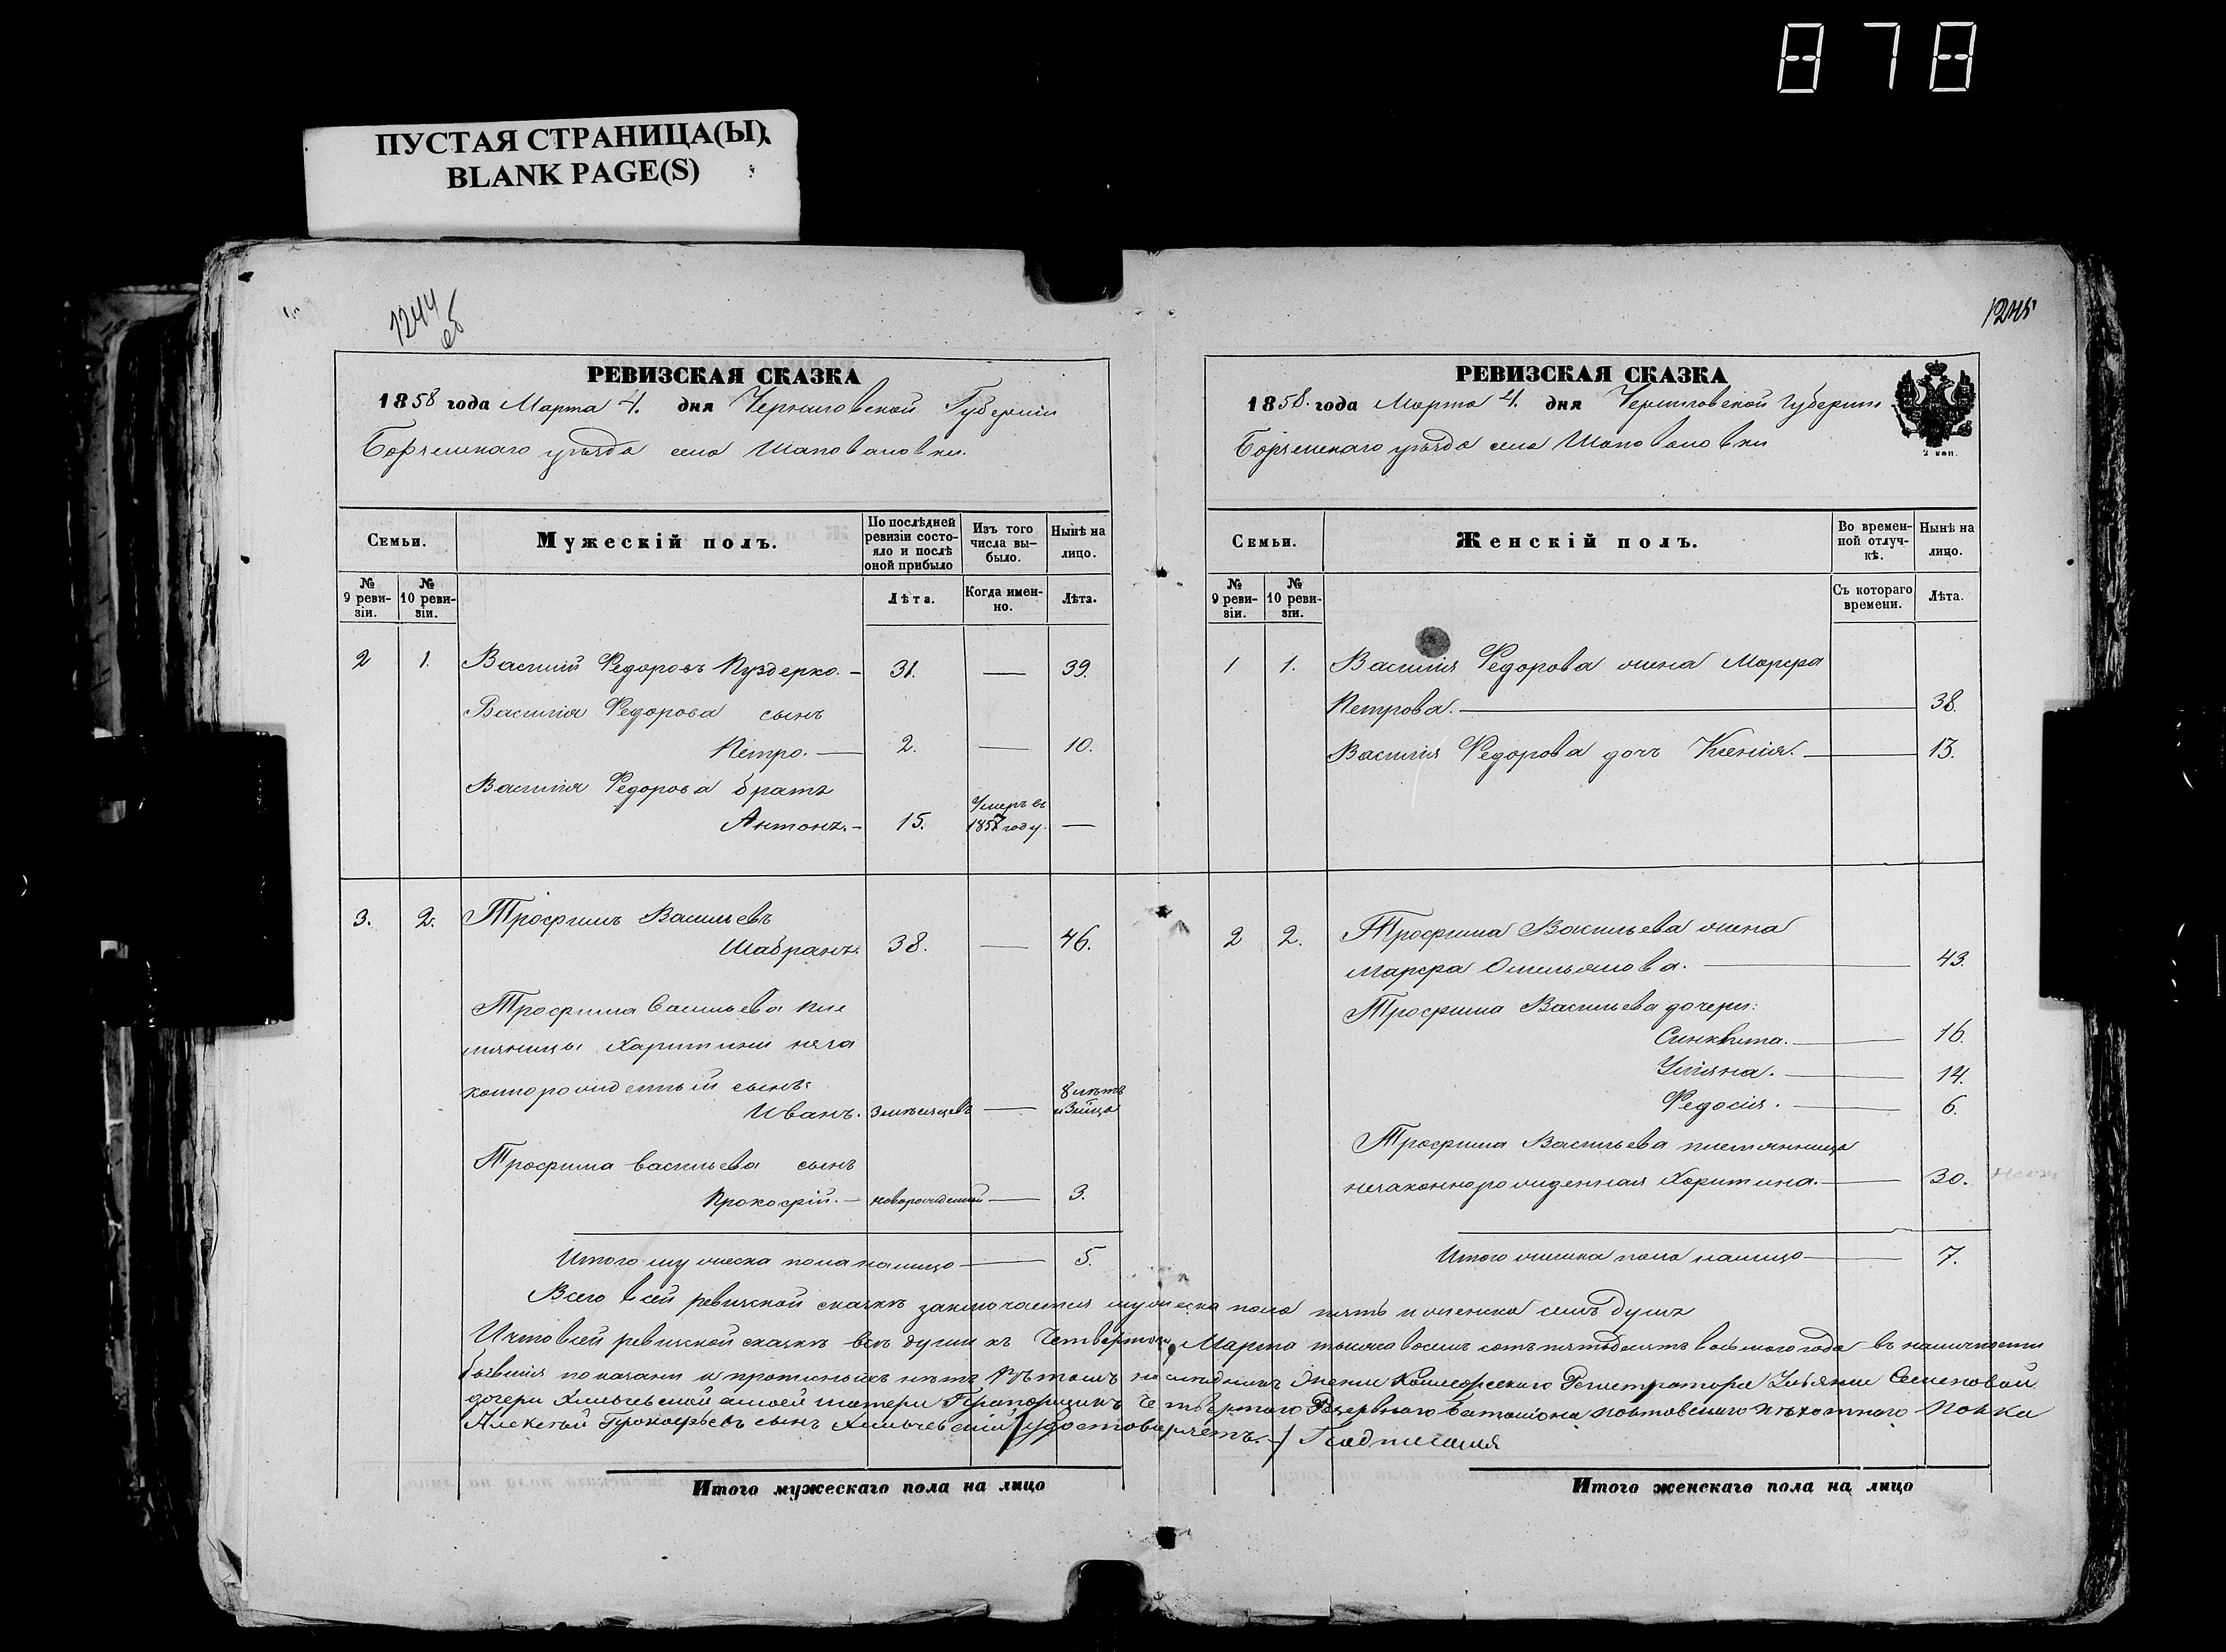 878
ПУСТАЯ СТРАНИЦА(Ы)
BLANK PAGE(S)
1244
об
РЕВИЗСКАЯ СКАЗКА
1858 года Марта 4. дня Черниговской Губернии
Борзенскаго уѣзда села Шаповаловки.
Семьи.
Мужескій полъ.
По послѣдней ревизіи состояло и послѣ оной прибыло
Изъ того числа вы-было.
Нынѣ на лицо.
№ 9 реви-зіи.
№ 10 реви-зіи.
Лѣта.
Когда имен-но.
Лѣта.
2 1. Василий Федоровъ Пуздерко. — 31. — 39.
Василия Федорова сынъ
Петро. — 2. — 10.
Василия Федорова братъ
Антонъ. — 15. Умеръ въ 1857 году. —
3. 2. Трофимъ Васильевъ
Шабранъ. 38. — 46.
Трофима Васильева пле
мяницы Харитини неза
коннорожденный сынъ:
Иванъ. 3 мѣсяцевъ — 8 лѣтъ и 3 м҃ца
Трофима Васильева сынъ
Прокофій. — новорожденный — 3.
Итого мужеска пола налицо — 5.
1245
РЕВИЗСКАЯ СКАЗКА
1858. года Марта 4. дня Черниговской Губернии
Борзенскаго уѣзда села Шаповаловки
2 коп.
Семьи.
Женскій полъ.
Во времен-ной отлуч-кѣ.
Нынѣ на лицо.
№ 9 реви-зіи.
№ 10 реви-зіи.
Съ котораго времени.
Лѣта.
1 1. Василия Федорова жена Марфа
Петрова. — 38.
Василия Федорова дочь Ксения. — 13.
2 2. Трофима Васильева жена
Марфа Омельянова. — 43.
Трофима Васильева дочери:
Синклита. — 16.
Уліяна. — 14.
Федосия. — 6.
Трофима Васильева племянница
незаконнорожденная Харитина. — 30.
Итого женска пола налицо — 7.
Всего в сей ревизской сказкѣ заключается мужеска пола пять и женска семь душъ
И что в сей ревизской сказкѣ всѣ души къ Четвертому Марта тысяча восемь сотъ пятьдесятъ восьмого года въ наличности
бывшия показани и прописныхъ нѣтъ, въ томъ наслѣдникъ Имения Колежского Регистратора Ульяни Семеновой
дочери Хильчевской а моей матери Прапорщикъ Четвертого Резервного Баталиона Полтовского пѣхотного Полка
Алексѣй Прокофьевъ сынъ Хильчевский удостоверяетъ. — Подписался
Итого мужескаго пола на лицо
Итого женскаго пола на лицо